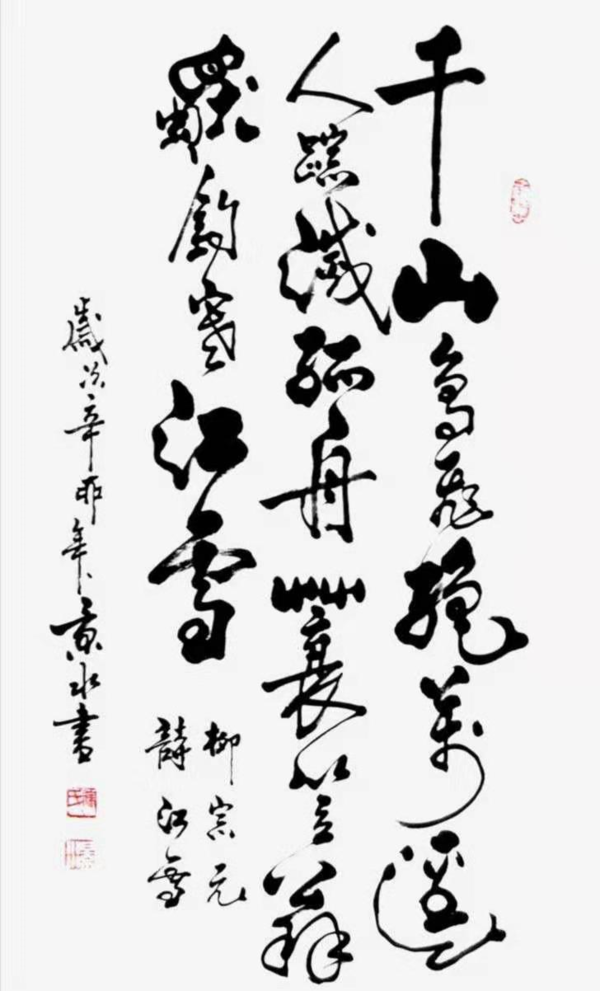 千山鳥飛絕萬逕
人蹤滅孤舟蓑笠翁
獨釣寒江雪
柳宗元
詩江雪
歲次辛卯年書